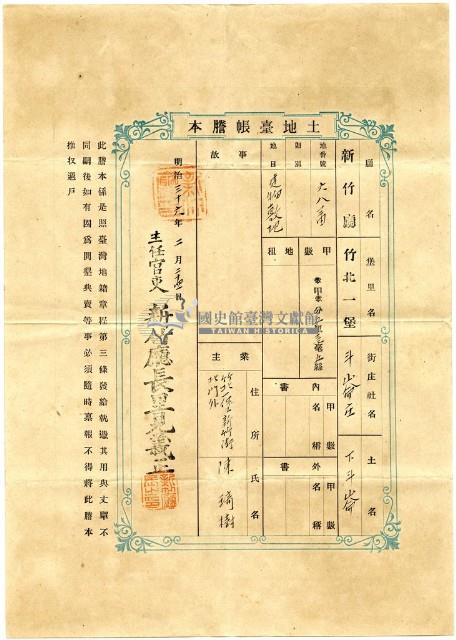 土地臺帳謄本
廳名
新竹廳
堡里名
竹北一堡
街庄社名
斗崙庄
土名
下斗崙
地番號
六八番
類別
地目
建物敷地
甲數
地租
內書
名稱
甲數
外書
名稱
甲數
事故
業主
住所
竹北一堡新竹街
北門外
氏名
陳
樹
明治三十九年二月
主任官吏
新竹廳長里見義正
此謄本係是照臺灣地籍章程第三條發給執遵其用與丈單不
同嗣後如有因為開墾典賣等事必須隨時稟報不得將此謄本
推收過戶
國史館臺灣文獻館
TAIWAN HISTORICA